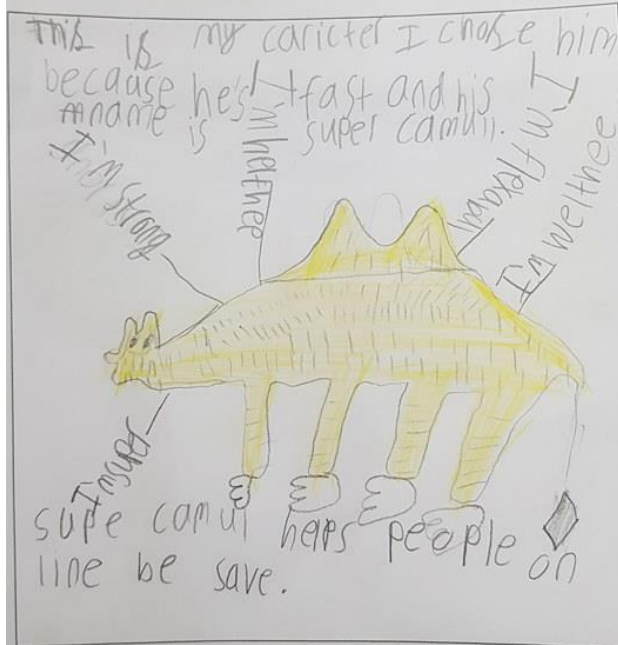 This is my caricter I chose him
because he's fast and his
name is super camull.
I'm strong
I'm helthee
I'm flexabull
I'm welthee
I'm super
supe camul helps people on
line be save.